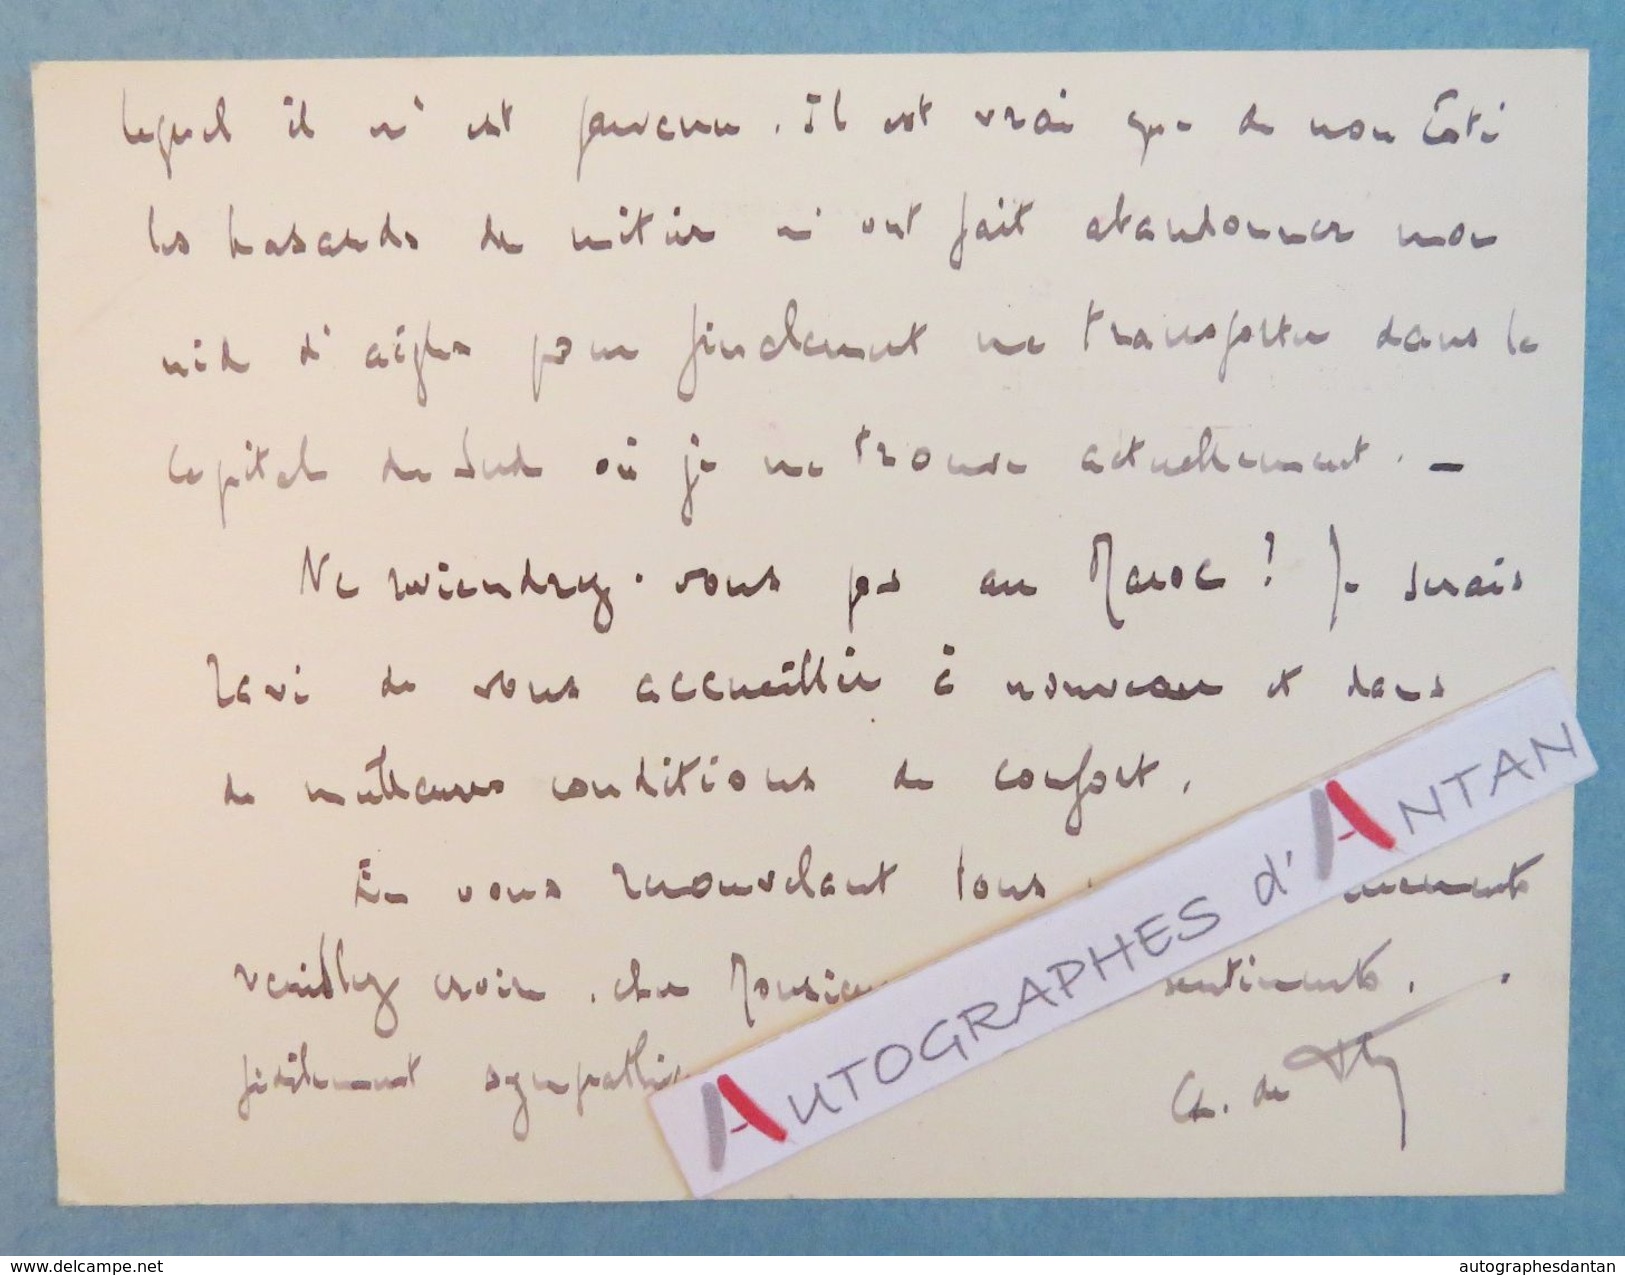 lequel il m'est parvenu. Il est vrai que de mon côté
les hasards du métier m'ont fait abandonner mon
nid d'aigles pour finalement me transporter dans la
capitale du Sud où je me trouve actuellement. —
Ne reviendrez-vous pas au Maroc ? Je serais
ravi de vous accueillir à nouveau et dans
de meilleures conditions de confort.
En vous renouvelant tous
veuillez croire, cher Monsieu sentiments
fidèlement sympathi
Ch. de
AUTOGRAPHES d'ANTAN
https://www.delcampe.net autographesdantan